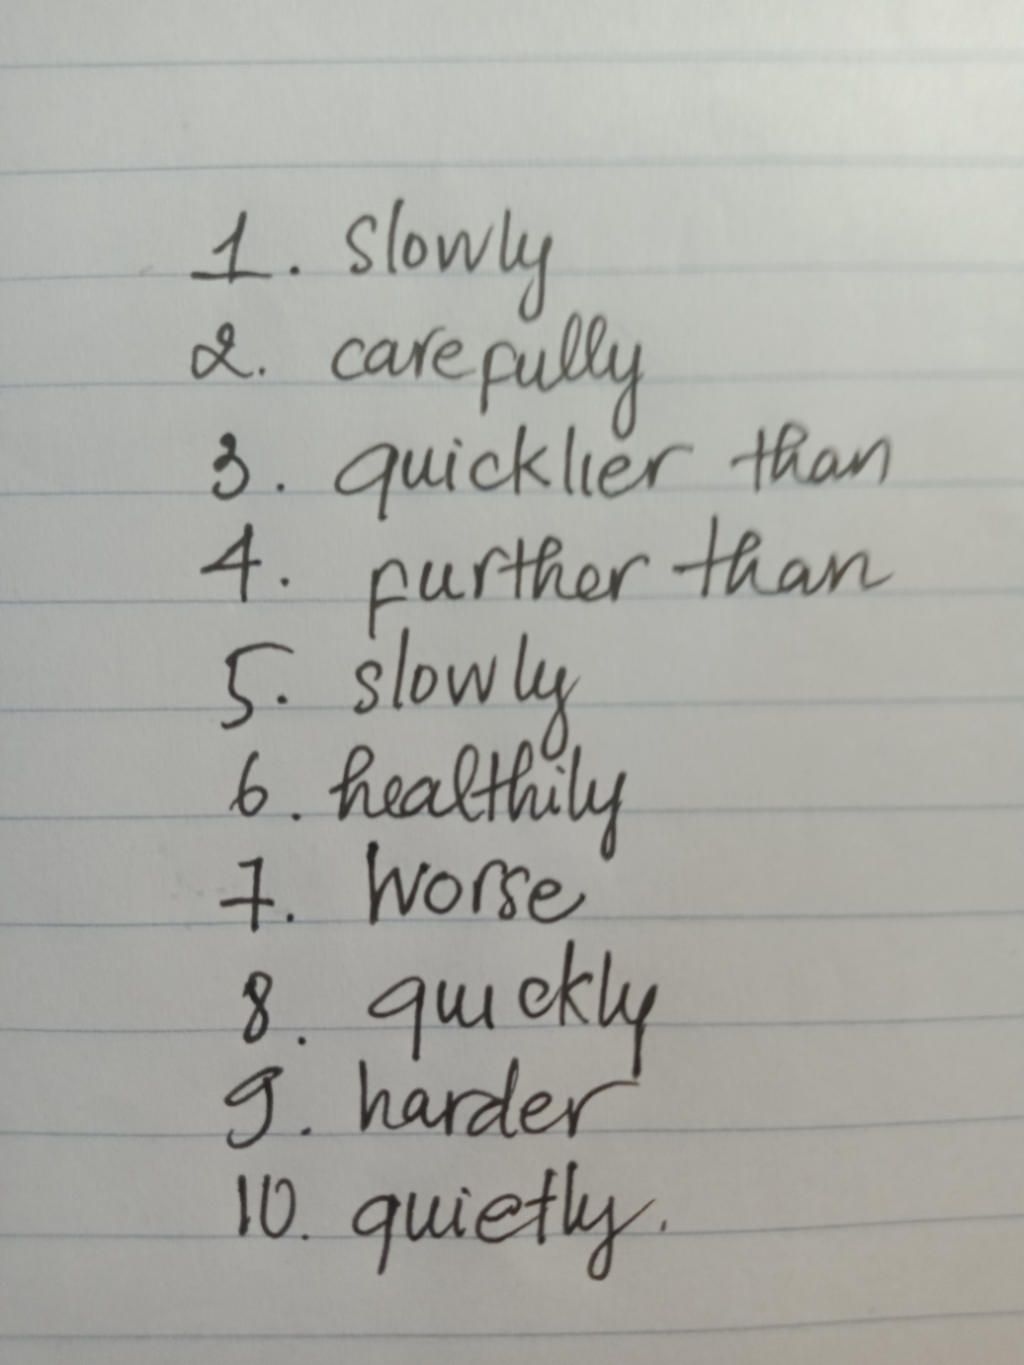 1. slowly
2. carefully
3. quicklier than
4. further than
5. slowly
6. healthily
7. Worse
8. quickly
9. harder
10. quietly.